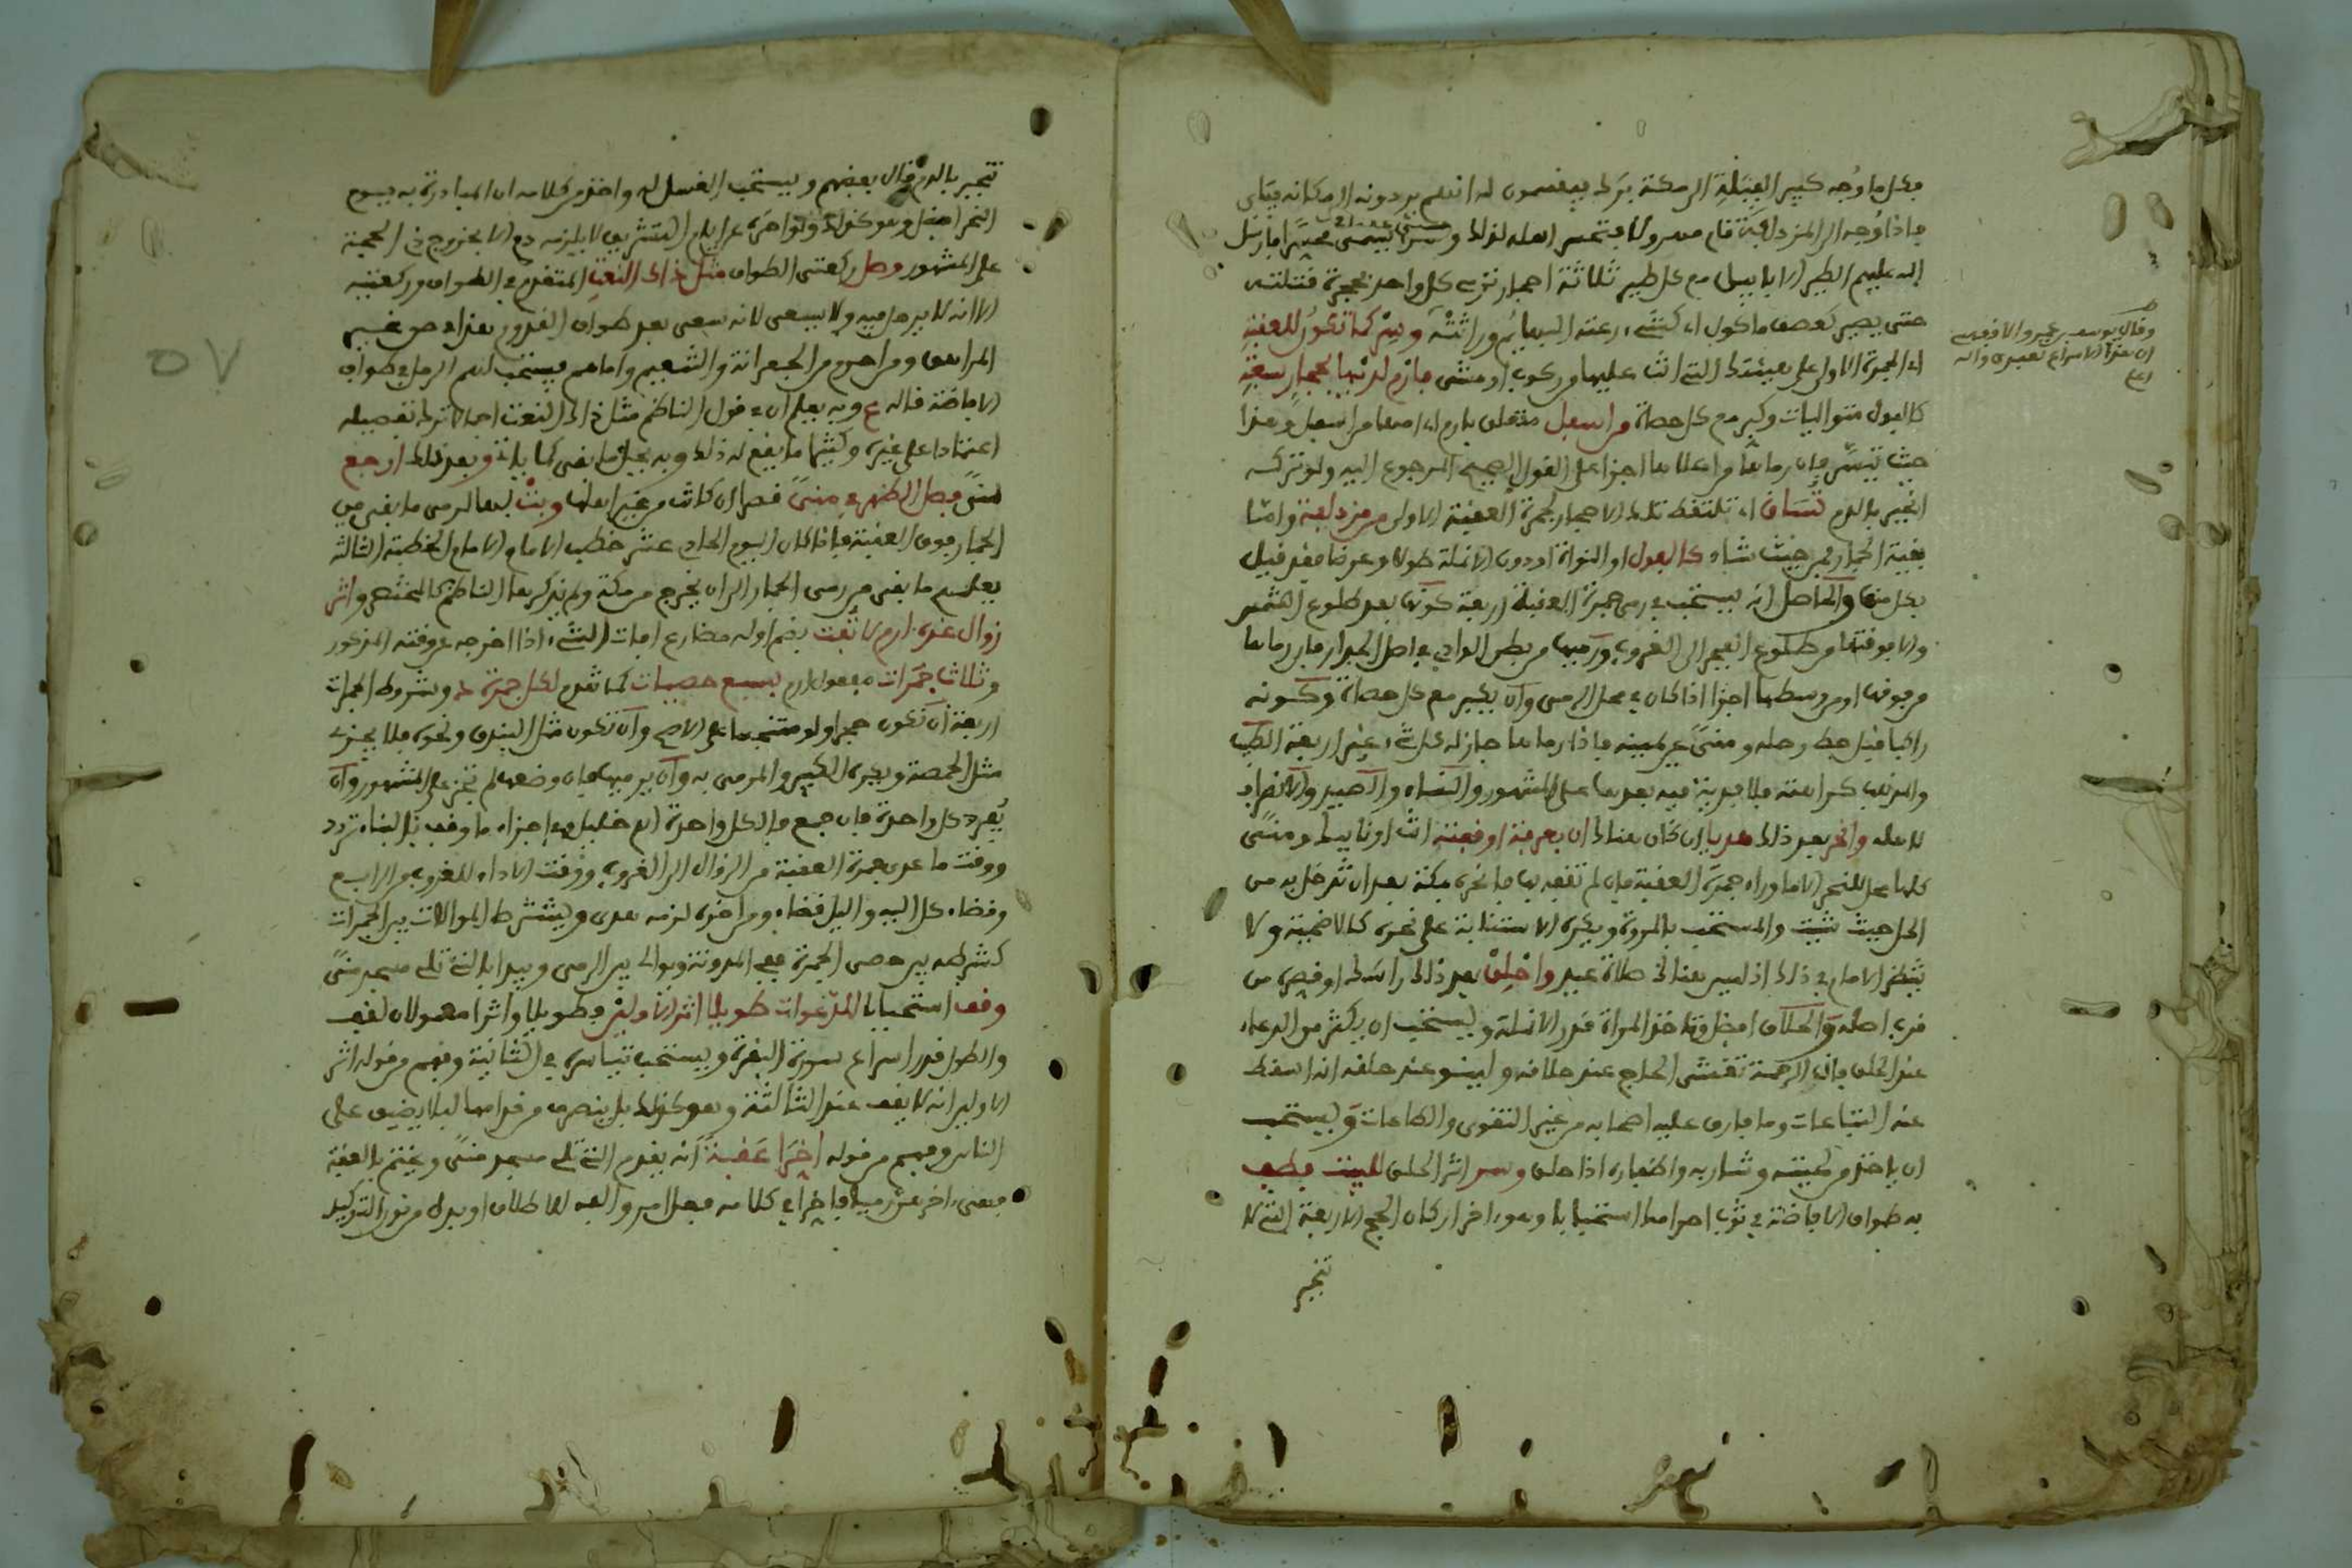 فكل ما وُجه كبير الفيَلة الى مكة بَرَك فيقسمون له انهم يردونه الى مكانه فيَاى
فاذا وُجه الى المزدلفة قام مسرعا
الله عليهم الطير الابابيل مع كل طير ثلاثة احجار ترمي كل واحد بحجرة فقتلته
حتى يصير كعصف ماكول اي كشيء رعته البهايم وراثته وسِرْ كما تكونُ للعقبةِ
اي الجمرة الاولى على هيئتك التي انت عليها من ركوب او مشي فارْمِ لديها بحجارٍ سبعةِ
كالفول متواليات وكبر مع كل حصاة من اسفل متعلق بارم اي ارمها من اسفل وهذا
حيث تيسّر فان رماها من اعلاها اجزا على القول الصحيح المرجوع اليه ولو تركه
انجبر بالدم تُسَاق اي تلتقط تلك الاحجار لجمرة العقبة الاولى من مزدلفة واما
بقية الجمار فمن حيث شاء كالفول او النواة او دون الانملة طولا وعرضا فقد قيل
بكل منها والحاصل انه يستحب في رمي جمرة العقبة اربعة كونها بعد طلوع الشمس
والا فوقتها من طلوع الفجر الى الغروب ورميها من بطن الوادي في اصل الجدار فان رماها
من فوقها او من وسطها اجزا اذا كان في محل الرمي وان يكبر مع كل حصاة وكونه
راكبا قبل حط رحله ومنىً عن يمينه فاذا رماها جاز له كل شيء غير اربعة الطيب
والمذهب كراهته فلا فدية فيه بعدها على المشهور والنساء والصيد والانصراف
لاهله وانحر بعد ذلك هديا ان كان هناك ان بعرفة اوقفته انت او نايبك ومنىً
كلها محل للنحر الا ما وراء جمرة العقبة فان لم تقف بها فانحره بمكة بعد ان تدخل به من
الحل حيث شيت والمستحب بالمروة ويكره الاستنابة على نحره كالاضحية ولا
تنتظر الامام في ذلك اذ ليس هنالك صلاة عيد واحْلِقْ بعد ذلك راسك او قصره من
قرب اصله والحلاق افضل وتاخذ المراة قدر الانملة ويستحب ان يكثر من الدعاء
عند الحلق فان الرحمة تغشى الحاج عند حلاقه ولينو عند حلقه انه اسقط
عنه التباعات وما فارق عليه اصحابه من غير التقوى والطاعات ويستحب
ان ياخذ من لحيته وشاربه واظفاره اذا حلق وسر اثر الحلق للبيت فطف
به طواف الافاضة في ثوب احرامك استحبابا وهو اخر اركان الحج الاربعة التي لا
تنجبر
وقال يوسف بن عمر والاقفهسي
ان هذا الاسراع تعبدي والله
اعلم
تنجبر بالدم قال بعضهم ويستحب الغسل له واخذ من كلامه ان المبادرة به يوم
النحر افضل وهو كذلك ولو اخره عن ايام التشريق لا يلزمه دم الا بخروج ذي الحجة
على المشهور وصل ركعتي الطواف مثل ذاك النعت المتقدم في الطواف وركعتيه
الا انه لا يرمل فيه ولا يسعى لانه سعى بعد طواف القدوم هذا في حق غير
المراهق ومن احرم من الجعرانة والتنعيم واما هم فيستحب لهم الرمل في طواف
الافاضة قاله ع وبه يعلم ان في قول الناظم مثل ذاك النعت اجمالا ترك تفصيله
اعتمادا على غيره وكثيرا ما يقع له ذلك وبه يحل ما بقي كما ياتي وبعد ذلك ارجع
لمنىً فصل الظهر في منىً قصرا ان كانت من غير اهلها وبتْ بها لرمي ما بقي من
الجمار فوق العقبة فاذا كان اليوم الحادي عشر خطب الامام او الامام الخطبة الثالثة
يعلمهم ما بقي من رمي الجمار الى ان يخرج من مكة ولم يذكرها الناظم كالمختصر واثر
زوال غده ارم لا تُفت بضم اوله مضارع افات الشيء اذا اخرجه عن وقته المذكور
وثلاث جمَرات مفعول ارم بسبع حصيات كما تقدم لكل جمرة ـه وشروط الجمرات
اربعة ان تكون حجرا ولو متنجسا على الاصح وان تكون مثل البندق ونحوه فلا يجزي
مثل الحمصة ويكره الكبير والمرمي به وان يرميها فان وضعها لم تجز على المشهور وان
يُفرد كل واحدة فان جمع فالكل واحدة
ووقت ما عدى جمرة العقبة من الزوال الى الغروب ووقت الاداء للغروب من الرابع
وقضاء كل اليه والليل قضاء ومن اخره لزمه هدي ويشترط الموالات بين الجمرات
كشرطه بين حصى الجمرة ففي المدونة ويوالي بين الرمي ويبدا بالتي تلي مسجد منىً
وقف استحبابا للدّعوات طويلا اثر الاوليْن فطويلا واثرا معمولان لقف
والطول قدر اسراع سورة البقرة ويستحب تياسره في الثانية وفهم من قوله اثر
الاولين انه لا يقف عند الثالثة وهو كذلك بل ينصرف من قدامها ليلا يضيق على
الناس وفهم من قوله اخّرَا عَقبةً انه يقدم التي تلي مسجد منىً ويختم بالعقبة
فمعنى اخر عقبة رميا فاخرا في كلامه فعل امر والفه للاطلاق او بدل من نون التوكيد